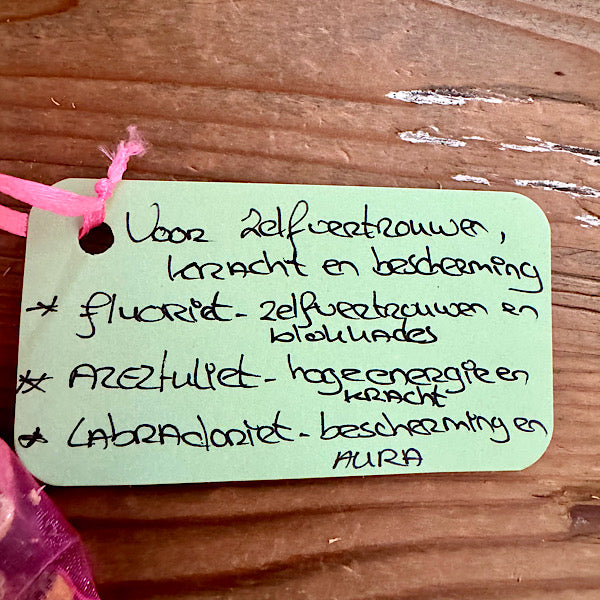 Voor zelfvertrouwen,
kracht en bescherming
* fluoriet - zelfvertrouwen en
blokkades
* Azeztuliet - hoge energie en
kracht
* Labradoriet - bescherming en
aura